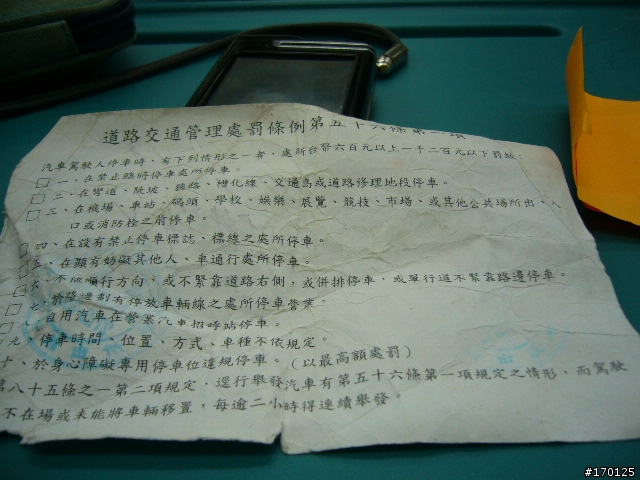 道路交通管理處罰條例第五十六條第一項
汽車駕駛人停車時，有下列情形之一者，處新台幣六百元以上一千二百元以下罰鍰：
□一、在禁止臨時停車處所停車。
□二、在彎道、陡坡、狹路、槽化線、交通島或道路修理地段停車。
□三、在機場、車站、碼頭、學校、娛樂、展覽、競技、市場、或其他公共場所出、入
口或消防栓之前停車。
□四、在設有禁止停車標誌、標線之處所停車。
□五、在顯有妨礙其他人、車通行處所停車。
□六、不依順行方向，或不緊靠道路右側，或併排停車，或單行道不緊靠路邊停車。
□七、於路邊劃有停放車輛線之處所停車營業。
自用汽車在營業汽車招呼站停車。
九、停車時間、位置、方式、車種不依規定。
十、於身心障礙專用停車位違規停車。（以最高額處罰）
第八十五條之一第二項規定，逕行舉發汽車有第五十六條第一項規定之情形，而駕駛
不在場或未能將車輛移置，每逾二小時得連續舉發
#170125